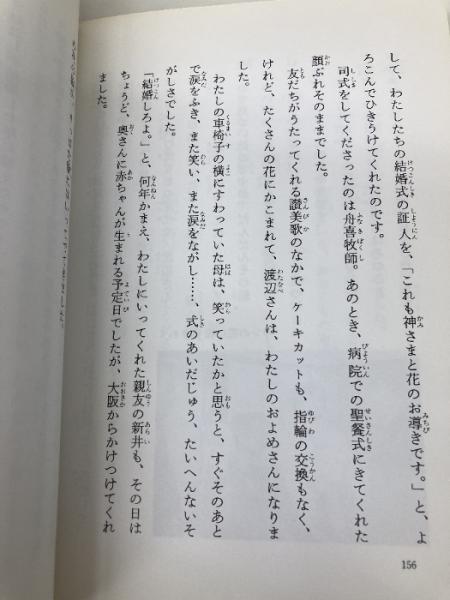 して、わたしたちの結婚式の証人を、「これも神さまと花のお導きです。」と、よ
ろこんでひきうけてくれたのです。
司式をしてくださったのは舟喜牧師。あのとき、病院での聖餐式にきてくれた
顔ぶれそのままでした。
友だちがうたってくれる讃美歌のなかで、ケーキカットも、指輪の交換もなく、
けれど、たくさんの花にかこまれて、渡辺さんは、わたしのおよめさんになりま
した。
わたしの車椅子の横にすわっていた母は、笑っていたかと思うと、すぐそのあと
で涙をふき、また笑い、また涙をながし……、式のあいだじゅう、たいへんないそ
がしさでした。
「結婚しろよ。」と、何年かまえ、わたしにいってくれた親友の新井も、その日は
ちょうど、奥さんに赤ちゃんが生まれる予定日でしたが、大阪からかけつけてくれ
ました。
156